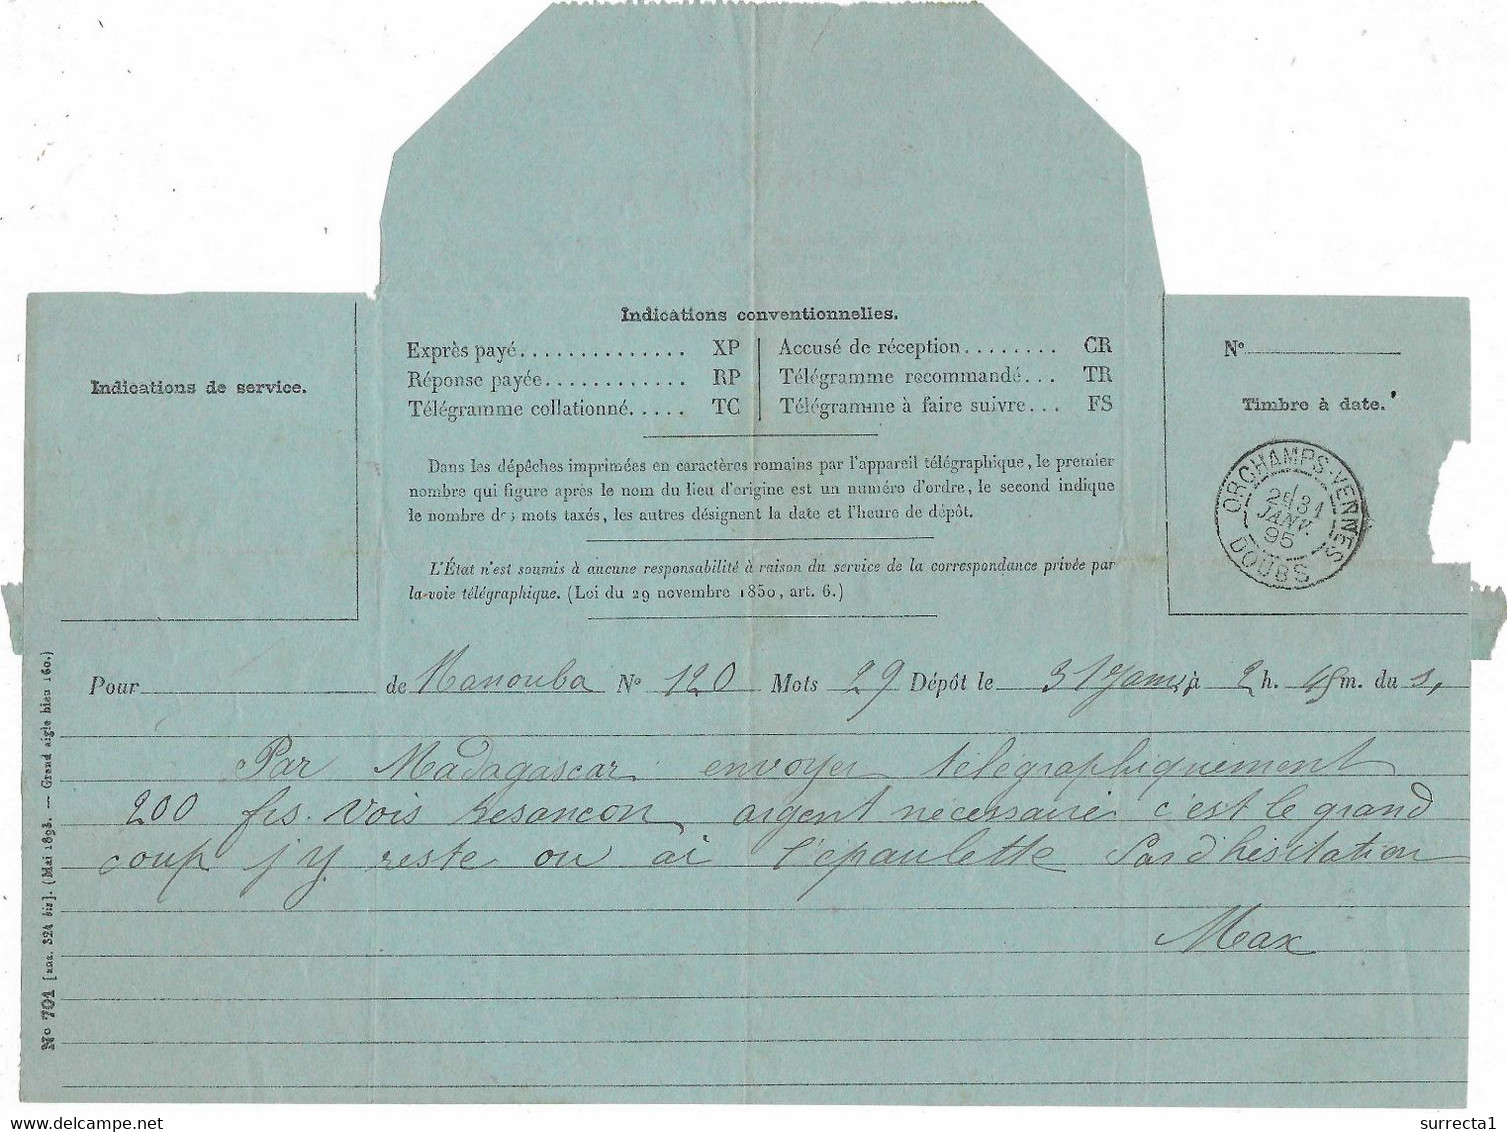 Indications conventionnelles.
Exprès payé.............. XP
Réponse payée............ RP
Télégramme collationné..... TC
Accusé de réception........ CR
Télégramme recommandé... TR
Télégramme à faire suivre... FS
Indications de service.
N°
Timbre à date.
Dans les dépêches imprimées en caractères romains par l'appareil télégraphique, le premier
nombre qui figure après le nom du lieu d'origine est un numéro d'ordre, le second indique
le nombre des mots taxés, les autres désignent la date et l'heure de dépôt.
L'État n'est soumis à aucune responsabilité à raison du service de la correspondance privée par
la voie télégraphique. (Loi du 29 novembre 1850, art. 6.)
ORCHAMPS-VENNES
31
JANV.
95
DOUBS
Pour de Manouba N° 120 Mots 29 Dépôt le 31 Janv, à 2 h. 45 m. du s,
Par Madagascar envoyer télégraphiquement
200 frs. Vois Besancon argent nécessaire c'est le grand
coup j'y reste ou ai l'épaulette Pas d'hésitation
Max
N° 701 [anc. 324 bis]. (Mai 1893. — Grand aigle bleu 160.)
surrecta1